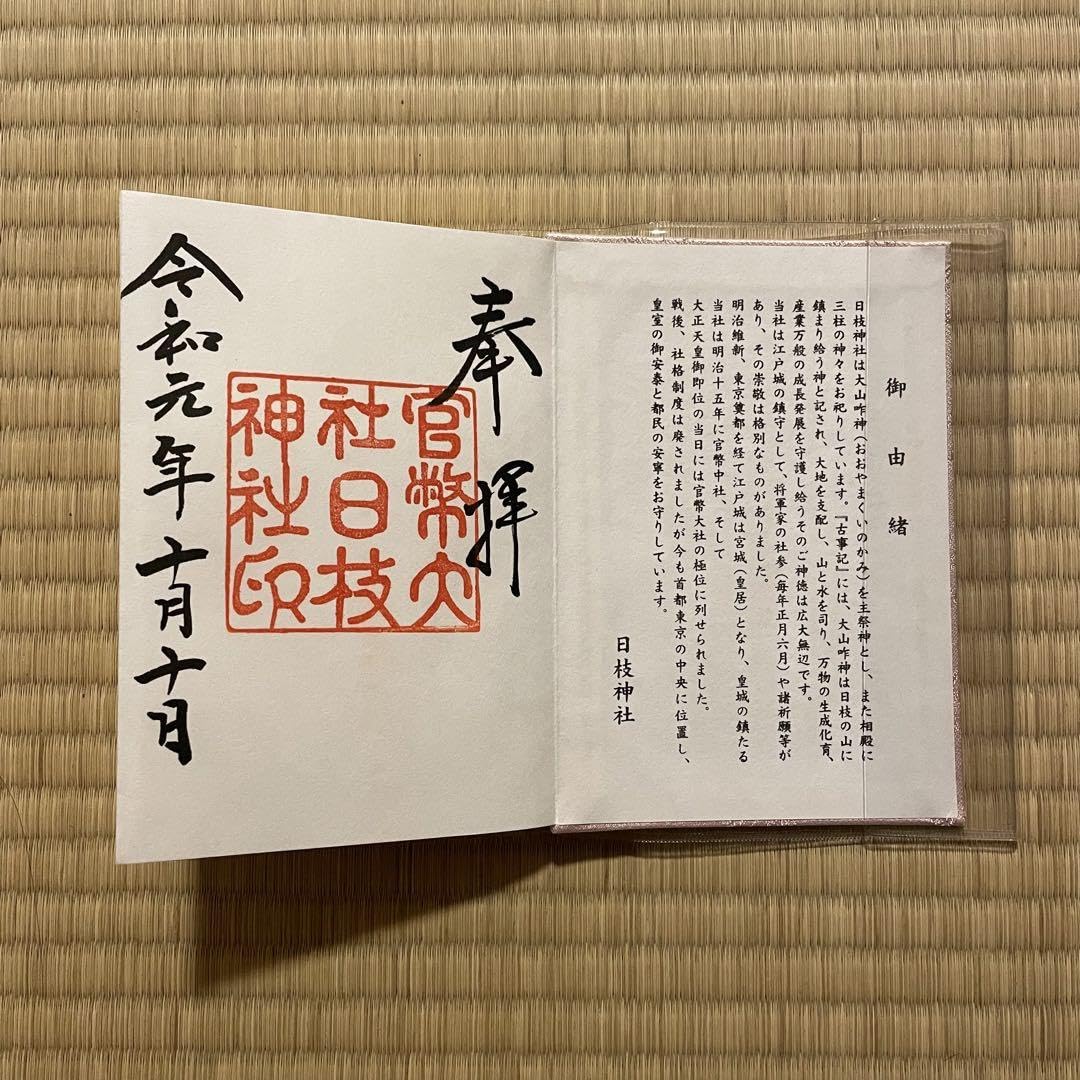 御由緒
日枝神社は大山咋神（おおやまくいのかみ）を主祭神とし、また相殿に
三柱の神々をお祀りしています。『古事記』には、大山咋神は日枝の山に
鎮まり給う神と記され、大地を支配し、山と水を司り、万物の生成化育、
産業万般の成長発展を守護し給うそのご神徳は広大無辺です。
当社は江戸城の鎮守として、将軍家の社参（毎年正月六月）や諸祈願等が
あり、その崇敬は格別なものがありました。
明治維新、東京奠都を経て江戸城は宮城（皇居）となり、皇城の鎮たる
当社は明治十五年に官幣中社、そして
大正天皇御即位の当日には官幣大社の極位に列せられました。
戦後、社格制度は廃されましたが今も首都東京の中央に位置し、
皇室の御安泰と都民の安寧をお守りしています。
日枝神社
奉拝
官幣大
社日枝
神社印
令和元年十月十日